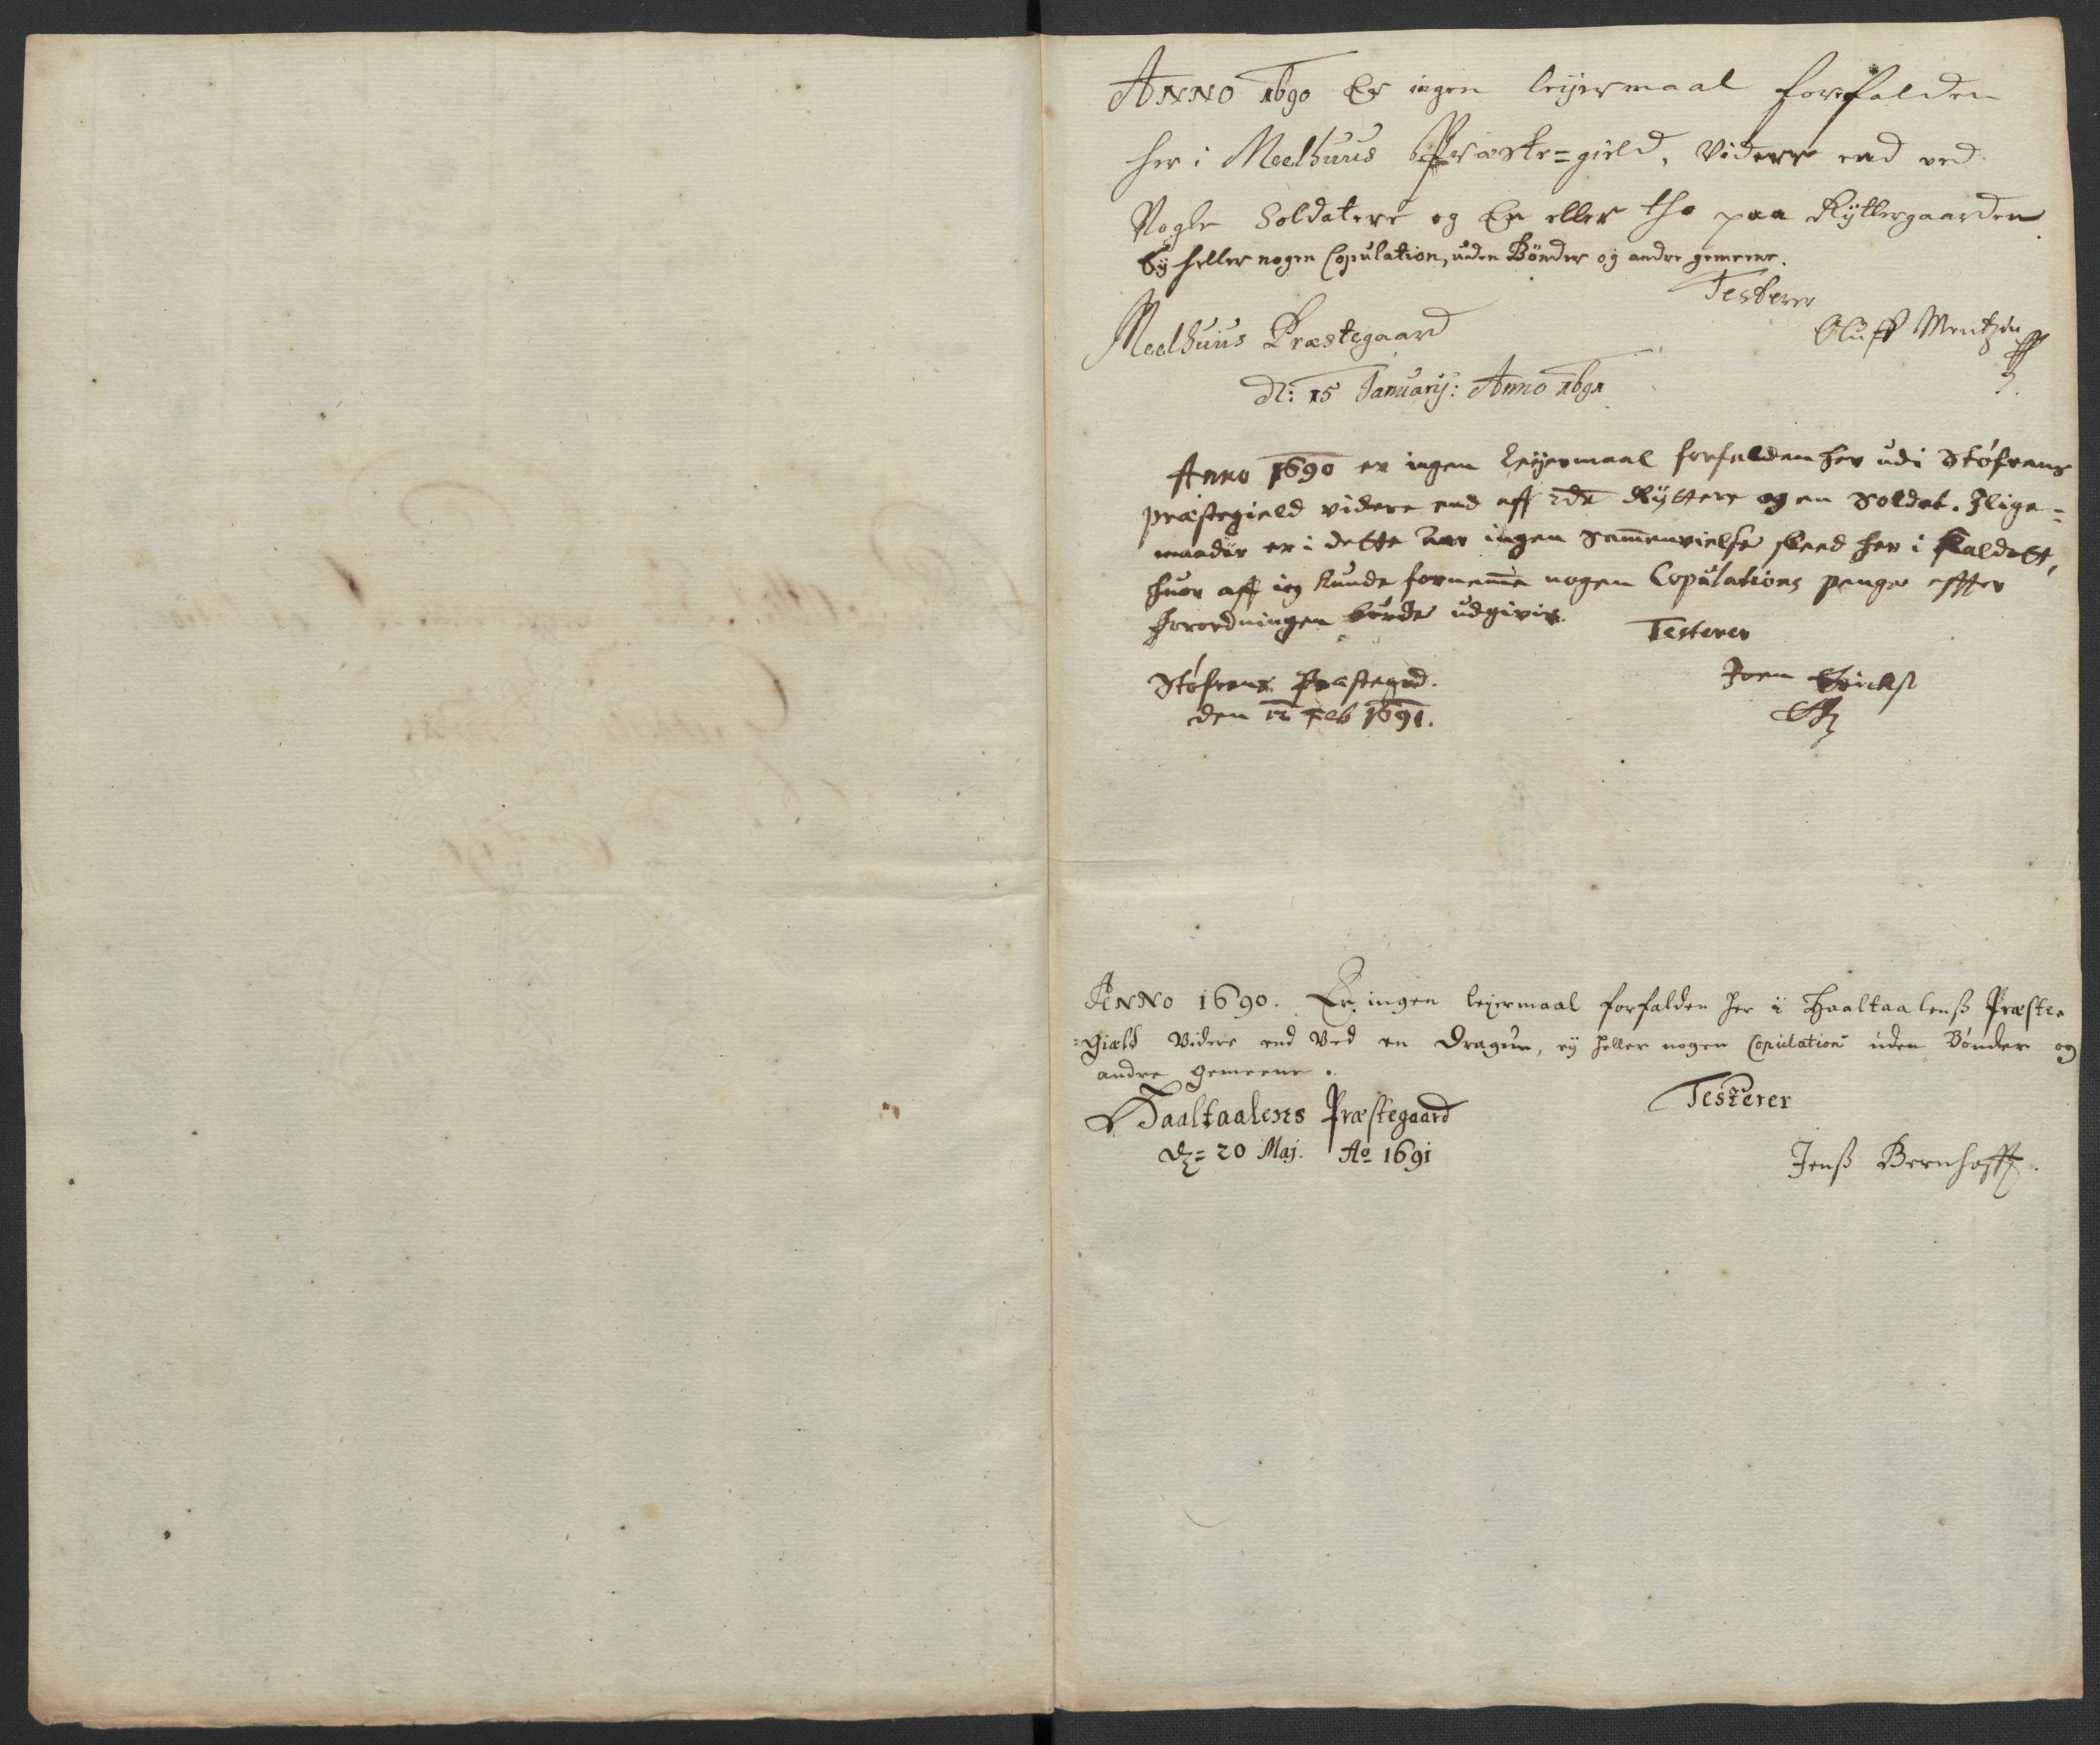 Anno 1690 Er ingen leyermaal forefalden
her i Meelhuus Præste=gield, Videre end ved
Nogle Soldatere og En eller tho paa Ryttergaarden
Ey heller nogen Copulation, uden Bönder og andre gemeene.
Testerer
Meelhuus Præstegaard
Oluff Mentzen
dl: 15 January: Anno 1691
Anno 1690 er ingen Leyermaal forfalden her udi Støfrens
præstegield videre end aff 2de Ryttere og en Soldat. Ilige=
maader er i dette Aar ingen Sammenvielse skeed her i Kaldett,
huor aff ieg kunde fornemme nogen Copulations penge effter
forordningen burde udgivis.
Testerer
Støfrens Præstegrd.
Joen Ericks
den 12 Feb 1691.
Anno 1690. Er ingen leyermaal forfalden her i Haaltaalenß Præste
=Giæld Videre end Ved en Dragun, ey heller nogen Copulation uden Bönder og
andre gemeene.
Haaltaalens Præstegaard
Testerer
d= 20 Maj. Ao 1691
Jenß Bernhofft.